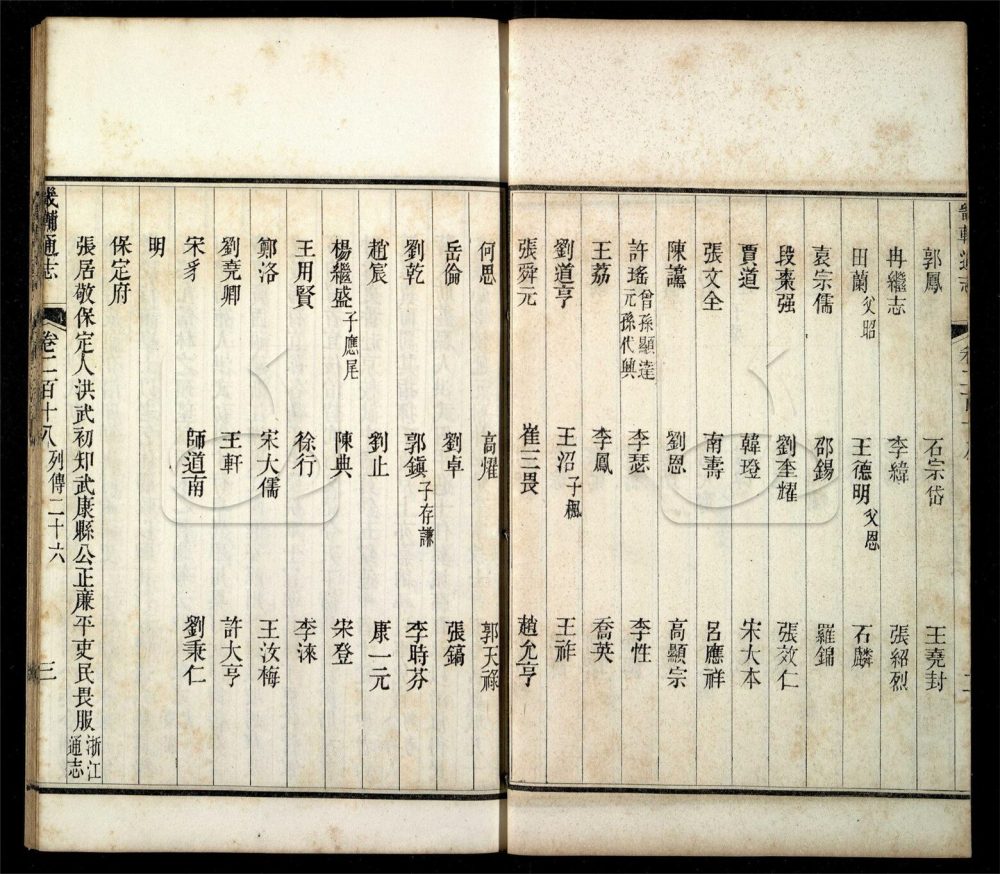 郭鳳 石宗岱 王堯封
冉繼志 李緯 張紹烈
田蘭父昭 王德明父恩 石麟
袁宗儒 邵錫 羅錦
段棗强 劉奎耀 張效仁
賈道 韓璒 宋大本
張文全 南壽 呂應祥
陳讜 劉恩 高顯宗
許瑤曾孫顯達 元孫代興 李瑟 李性
王荔 李鳳 喬英
劉道亨 王沼子楓 王祚
張舜元 崔三畏 趙允亨
何思 高燿 郭天祿
岳倫 劉卓 張鎬
劉乾 郭鎮子存謙 李時芬
趙宸 劉止 康一元
楊繼盛子應尾 陳典 宋登
王用賢 徐行 李淶
鄭洛 宋大儒 王汝梅
劉堯卿 王軒 許大亨
宋豸 師道南 劉秉仁
明
保定府
張居敬保定人洪武初知武康縣公正廉平吏民畏服浙江通志
畿輔通志 卷二百十八 列傳二十六 三